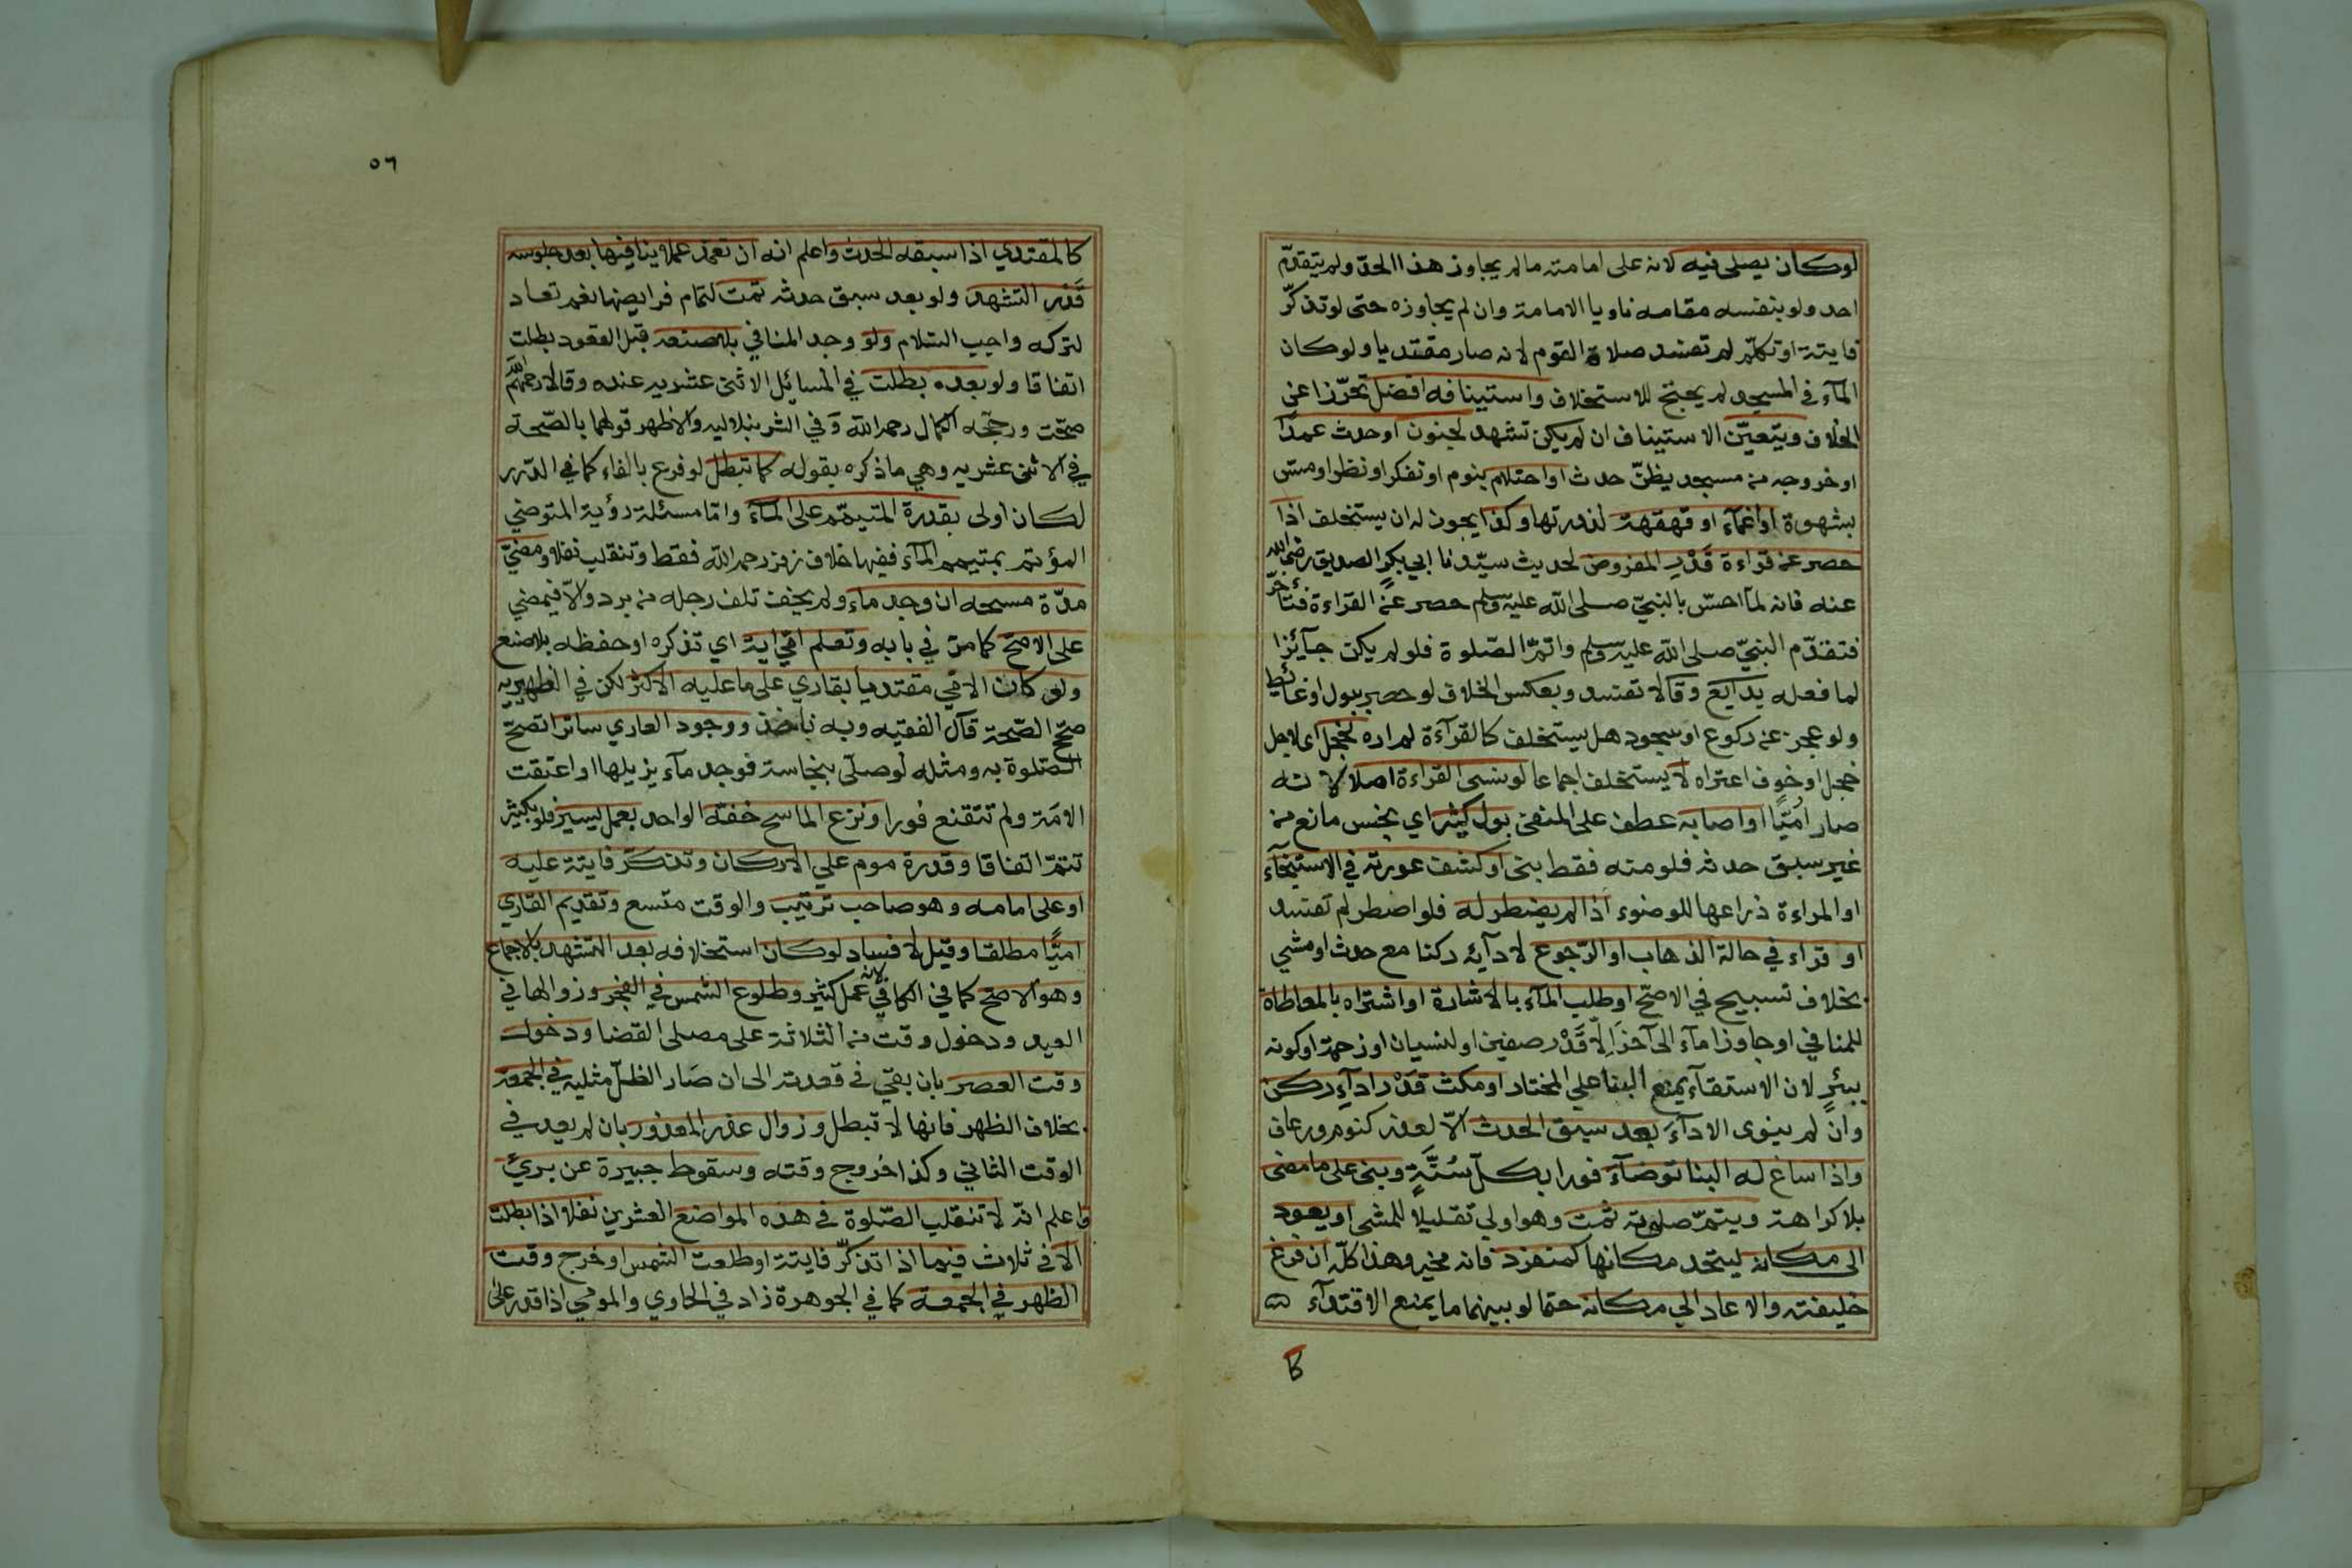 لوكان يصلى فيه لانه على امامته مالم يجاوز هذا الحدّ ولم يتقدّم
احد ولو بنفسه مقامه ناويا الامامة وان لم يجاوزه حتى لو تذكّر
فايتة او تكلّم لم تفسد صلاة القوم لانه صار مقتديا ولوكان
المآء في المسجد لم يحتج للاستخلاف واستينافه افضل تحرّزا عن
الخلاف ويتعيّن الاستيناف ان لم يكن تشهد لجنون او حدث عمدًا
او خروجه من مسجد يظنّ حدث او احتلام بنوم او تفكر او نظر او مسّ
بشهوة او اغمآء او قهقهة لندرتها وكذا يجوز له ان يستخلف اذا
حصر عن قراءة قَدْرِ المفروض لحديث سيّدنا ابي بكرٍ الصديق رضى الله
عنه فانه لمآ احسّ بالنبيّ صلى الله عليه وسلم حصر عن القراءة فتأخّر
فتقدّم النبيّ صلى الله عليه وسلم واتمّ الصّلوة فلو لم يكن جآئزا
لما فعله بدايع وقالا تفسد وبعكس الخلاف لو حصر ببول او غائط
ولو عجز عن ركوع او سجود هل يستخلف كالقرآءة لم اره لخجل اى لاجل
خجل او خوف اعتراه لا يستخلف اجماعا لو نسى القراءة اصلا لانه
صار امّيًّا او اصابه عطف على المنفى بول كثير اي نجس مانع من
غير سبق حدثه فلو منه فقط بنى او كشف عورته في الاستنجآء
او المراءة ذراعها للوضوء اذا لم يضطر له فلو اضطر لم تفسد
او قراء في حالة الذهاب او الرّجوع لادآيه ركنا مع حدث او مشي
بخلاف تسبيح في الاصحّ او طلب المآء بالاشارة او اشتراه بالمعاطاة
للمنافي او جاوز مآء الى آخر الّا قَدْر صفين او لنسيان او زحمة او كونه
ببئرٍ لان الاستقآء يمنع البنا على المختار او مكث قَدْر ادآءِ ركن
وان لم ينوى الادآءَ بعد سبق الحدث الّا لعذر كنوم ورعاف
واذا ساغ له البنا توضآء فورا بكلّ سُنّةٍ وبنى على ما مضى
بلا كراهة ويتمّ صلوته ثمت وهو اولى تقليلا للمشى او يعود
الى مكانه ليتحد مكانها كمنفرد فانه مخير وهذا كلّه ان فرغ
خليفته والا عاد الي مكانه حتما لو بينهما ما يمنع الاقتدآء
كا
٥٦
كالمقتدي اذا سبقه الحدث واعلم انه ان تعمد عملا ينافيها بعد جلوسه
قَدْر التشهد ولو بعد سبق حدثه تمت لتمام فرايضها نعم تعاد
لترك واجب السّلام ولو وجد المنافي بلا صنعه قبل القعود بطلت
اتفاقا ولو بعده بطلت في المسائل الاثنى عشريه عنده وقالا رحمهم الله
صحّت ورجّحه الكمال رحمه الله وفي الشرنبلاليه والاظهر قولهما بالصّحة
في الاثنى عشريه وهي ما ذكره بقوله كما تبطل لو فرع بالفاء كما في الدّرر
لكان اولى بقدرة المتيمّم على المآء وامّا مسئلة رؤية المتوضي
المؤتم بمتيمم المآء ففيها خلاف زفر رحمه الله فقط وتنقلب نفلا ومضيّ
مدّة مسحه ان وجد ماء ولم يخف تلف رجله من برد والّا فيمضي
على الاصحّ كما مرّ في بابه وتعلم امّي اية اي تذكره او حفظه بلا صنع
ولو كان الامّي مقتديا بقاري على ما عليه الاكثر لكن في الظهيريه
صحّح الصّحة قال الفقيه وبه ناخذ ووجود العاري ساترا تصحّ
الصّلوة به ومثله لو صلّى بنجاسة فوجد مآء يزيلها او اعتقت
الامَة ولم تتقنع فورا ونزع الماسح خفّه الواحد بعمل يسير فلو بكثير
تتمّ اتفاقا وقدرة موم على الاركان وتذكّر فايتة عليه
او على امامه وهو صاحب ترتيب والوقت متسع وتقديم القاري
امّيًّا مطلقا وقيل لا فساد لوكان استخلافه بعد التّشهد بالاجماع
وهو الاصحّ كما في الكافي لانه عمل كثير وطلوع الشّمس في الفجر وزوالها في
العيد ودخول وقت من الثلاثة على مصلى القضا ودخول
وقت العصر بان بقي في قعدته الى ان صَار الظلّ مثليه في الجمعة
بخلاف الظهر فانها لا تبطل وزوال عذر المعذور بان لم يعد في
الوقت الثاني وكذا خروج وقته وسقوط جبيرة عن بريءٍ
واعلم انّه لا تنقلب الصّلوة في هذه المواضع العشرين نفلا اذا بطلت
الّا في ثلاث فيما اذا تذكّر فايتة او طلعت الشّمس او خرج وقت
الظهر في الجمعة كما في الجوهرة زاد في الحاوي والمومي اذا قدر على